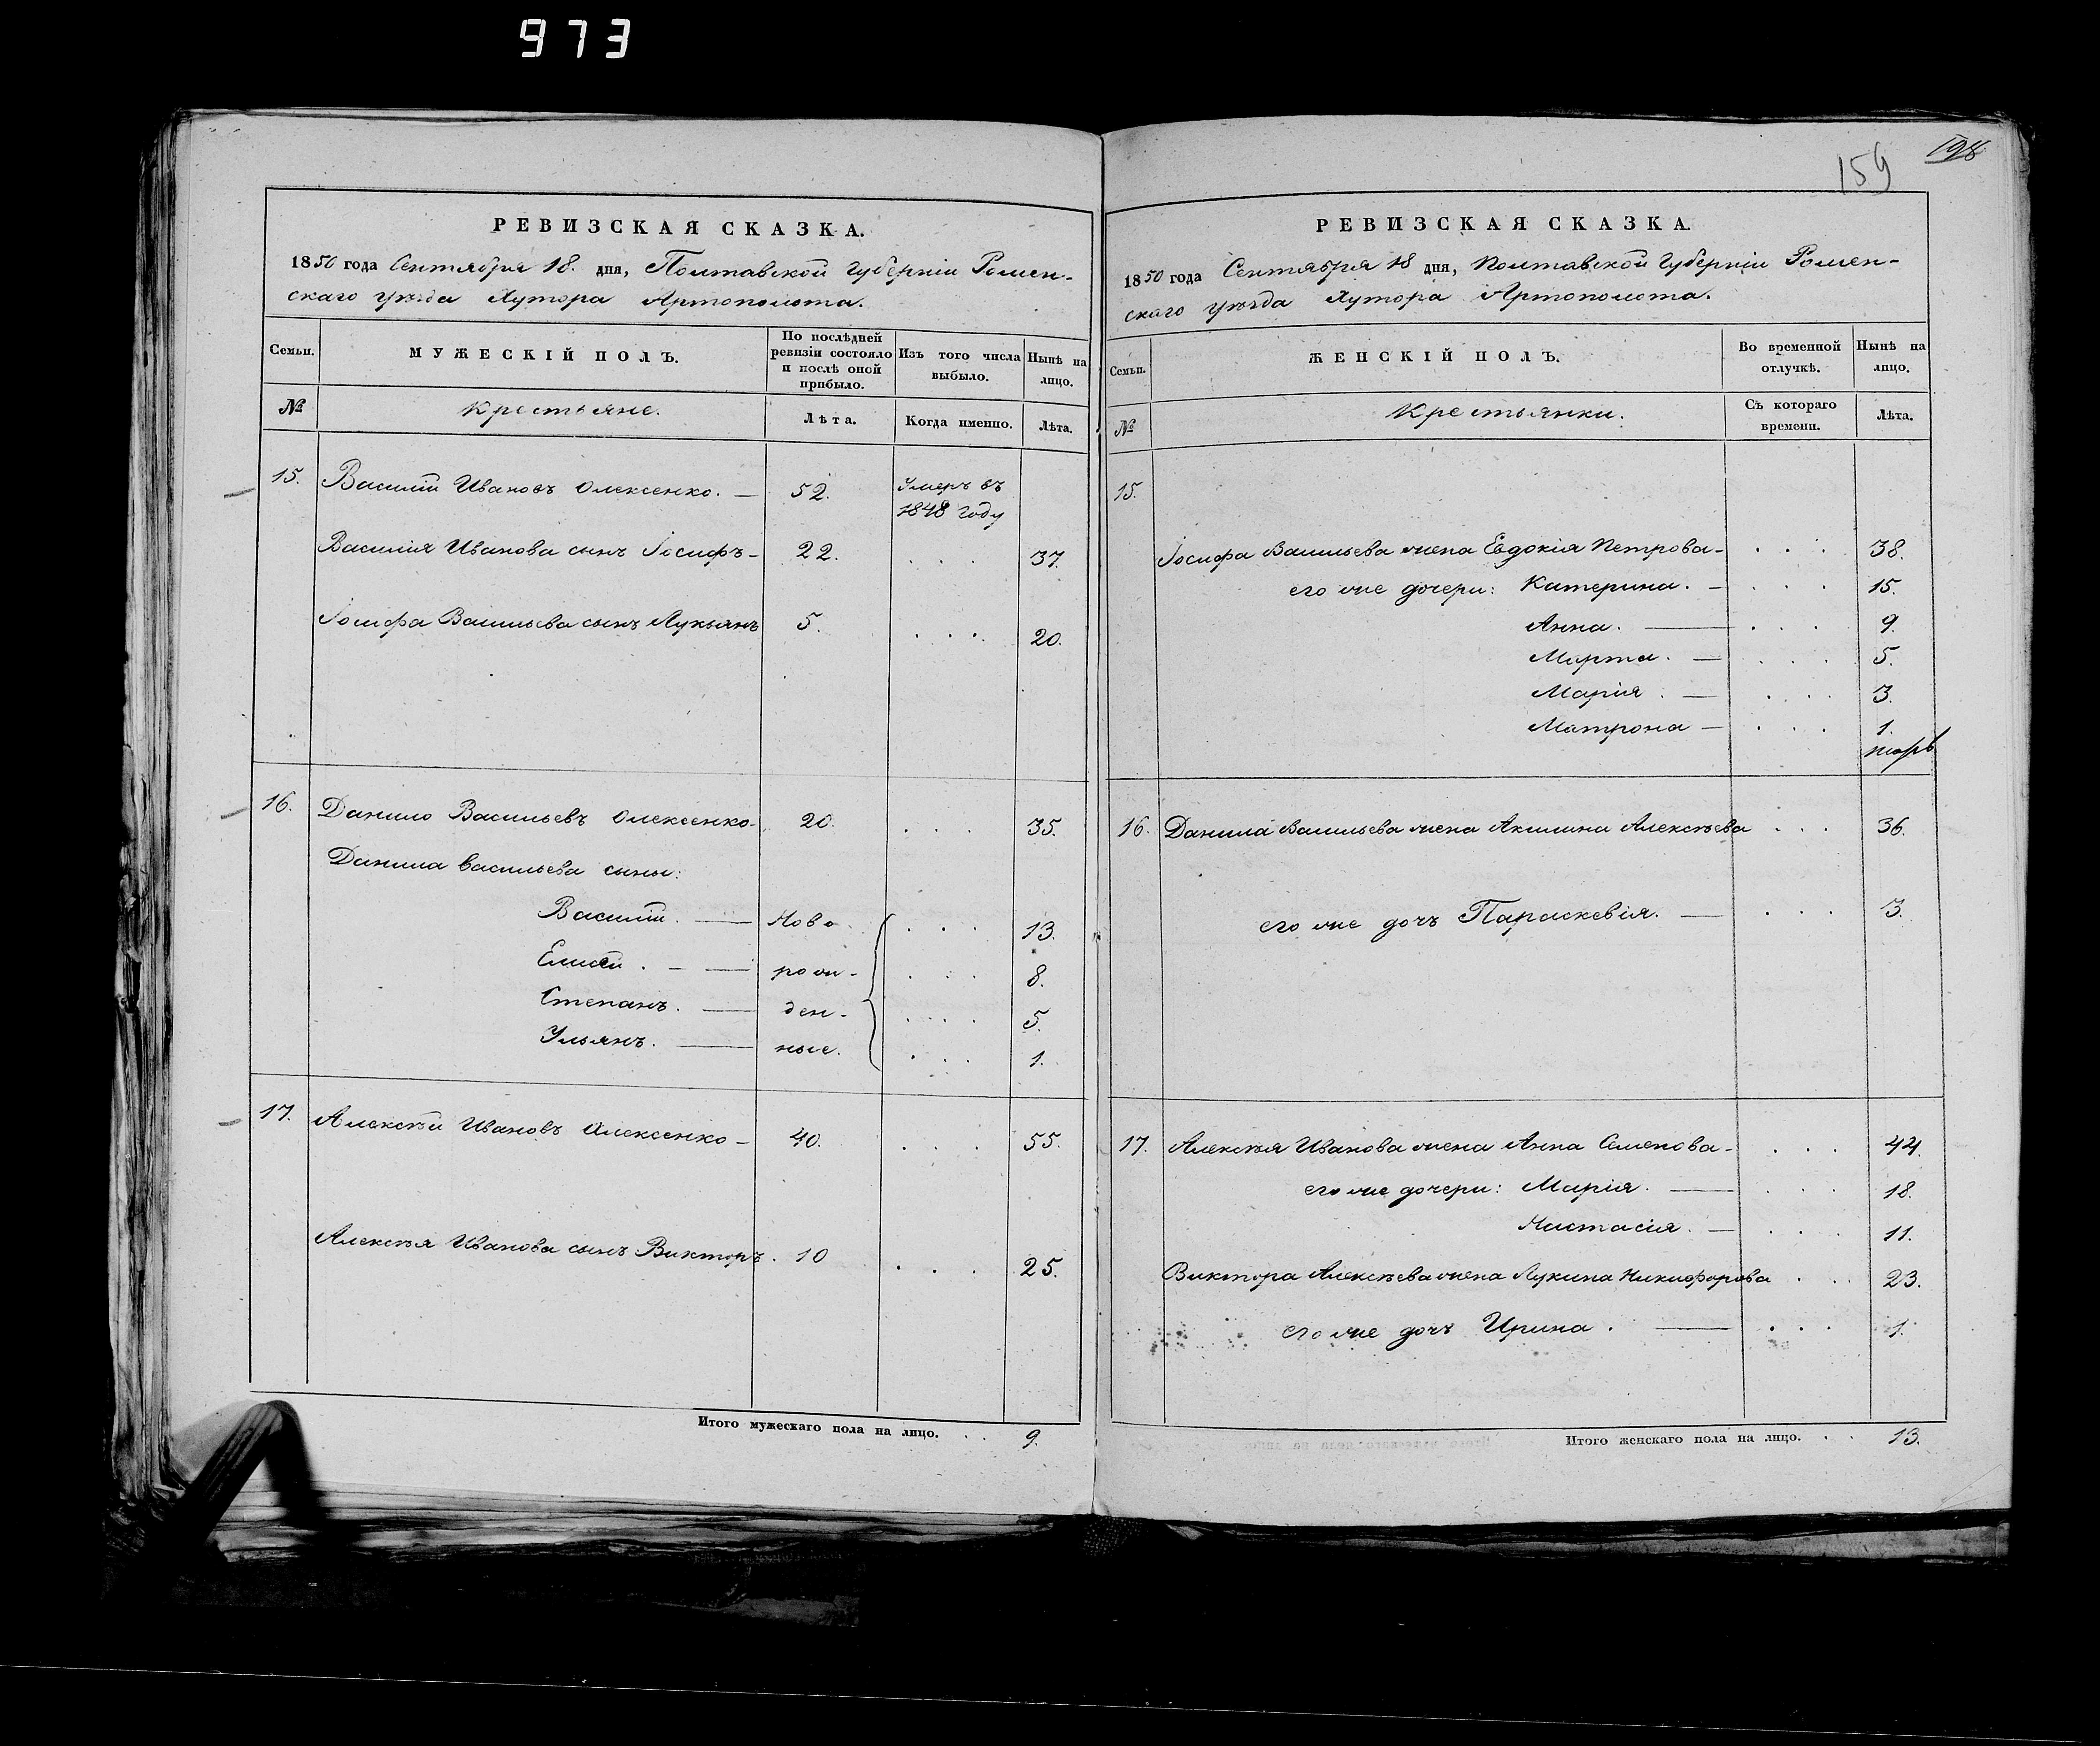 973
РЕВИЗСКАЯ СКАЗКА.
1850 года Сентября 18. дня, Полтавской Губерніи Ромен-
скаго уѣзда Хутора Артополота.
Семьи.
МУЖЕСКІЙ ПОЛЪ.
По послѣдней ревизіи состояло и послѣ оной прибыло.
Изъ того числа выбыло.
Нынѣ на лицо.
№
Крестьяне.
Лѣта.
Когда именно.
Лѣта.
15. Василій Ивановъ Олексенко. — 52. Умеръ въ
1848 году
Василія Иванова сынъ Іосифъ — 22. . . . 37.
Іосифа Васильева сынъ Лукьянъ 5. . . . . 20.
16. Данило Васильевъ Олексенко. 20. . . . 35.
Данила Васильева сыны:
Василій. — Ново . . . 13.
Елисей. — рож- . . . 8.
Степанъ. — ден- . . . . 5.
Ульянъ. — ные. . . . 1.
17. Алексѣй Ивановъ Олексенко — 40. . . . 55.
Алексѣя Иванова сынъ Викторъ. 10 . . . 25.
Итого мужескаго пола на лицо. . . 9.
159
198
РЕВИЗСКАЯ СКАЗКА.
1850 года Сентября 18 дня, Полтавской Губерніи Ромен-
скаго уѣзда Хутора Артополота.
Семьи.
ЖЕНСКІЙ ПОЛЪ.
Во временной отлучкѣ.
Нынѣ на лицо.
№
Крестьянки.
Съ котораго времени.
Лѣта.
15.
Іосифа Васильева жена Евдокія Петрова — . . . 38.
его же дочери: Катерина. — . . . 15.
Анна. — . . . 9.
Марта. — . . . 5.
Марія. — . . . . 3.
Матрона — . . . 1.
16. Данила Васильева жена Акилина Алексѣева . . . 36.
его же дочь Параскевія. — . . . 3.
17. Алексѣя Иванова жена Анна Семенова — . . . 44.
его же дочери: Марія. — . . . 18.
Настасія. — . . . . 11.
Виктора Алексѣева жена Лукина Никифорова . . . 23.
его же дочь Ирина. — . . . 1.
Итого женскаго пола на лицо. . . 13.